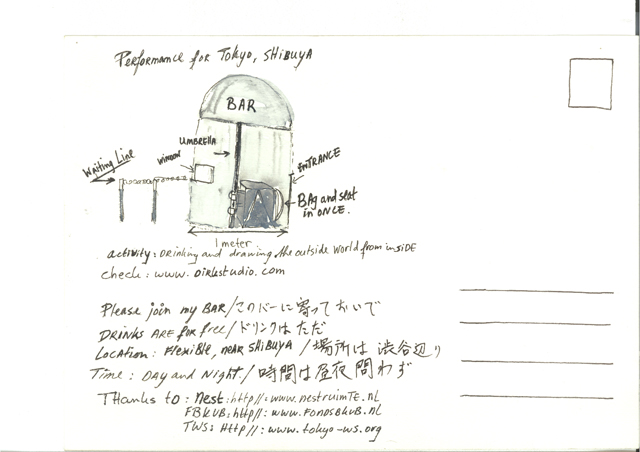 Performance for Tokyo, SHIBUYA
BAR
UMBRELLA
WINDOW
Waiting Line
ENTRANCE
BAg and seat
in ONCE.
1 meter
activity: DRinking and drawing the outside World from inSiDE
check: www.Dirkstudio.com
Please join my BAR/このバーに寄っておいで
DRINKS ARE for free/ドリンクは ただ
Location: Flexible, near SHIBUYA /場所は 渋谷辺り
Time: DAY and Night/時間は昼夜問わず
THanks to: Nest: http//: www.nestruimTE.nl
FBKVB: http//: www.FONDSBKVB.nl
TWS: Http//: www.tokyo-ws.org